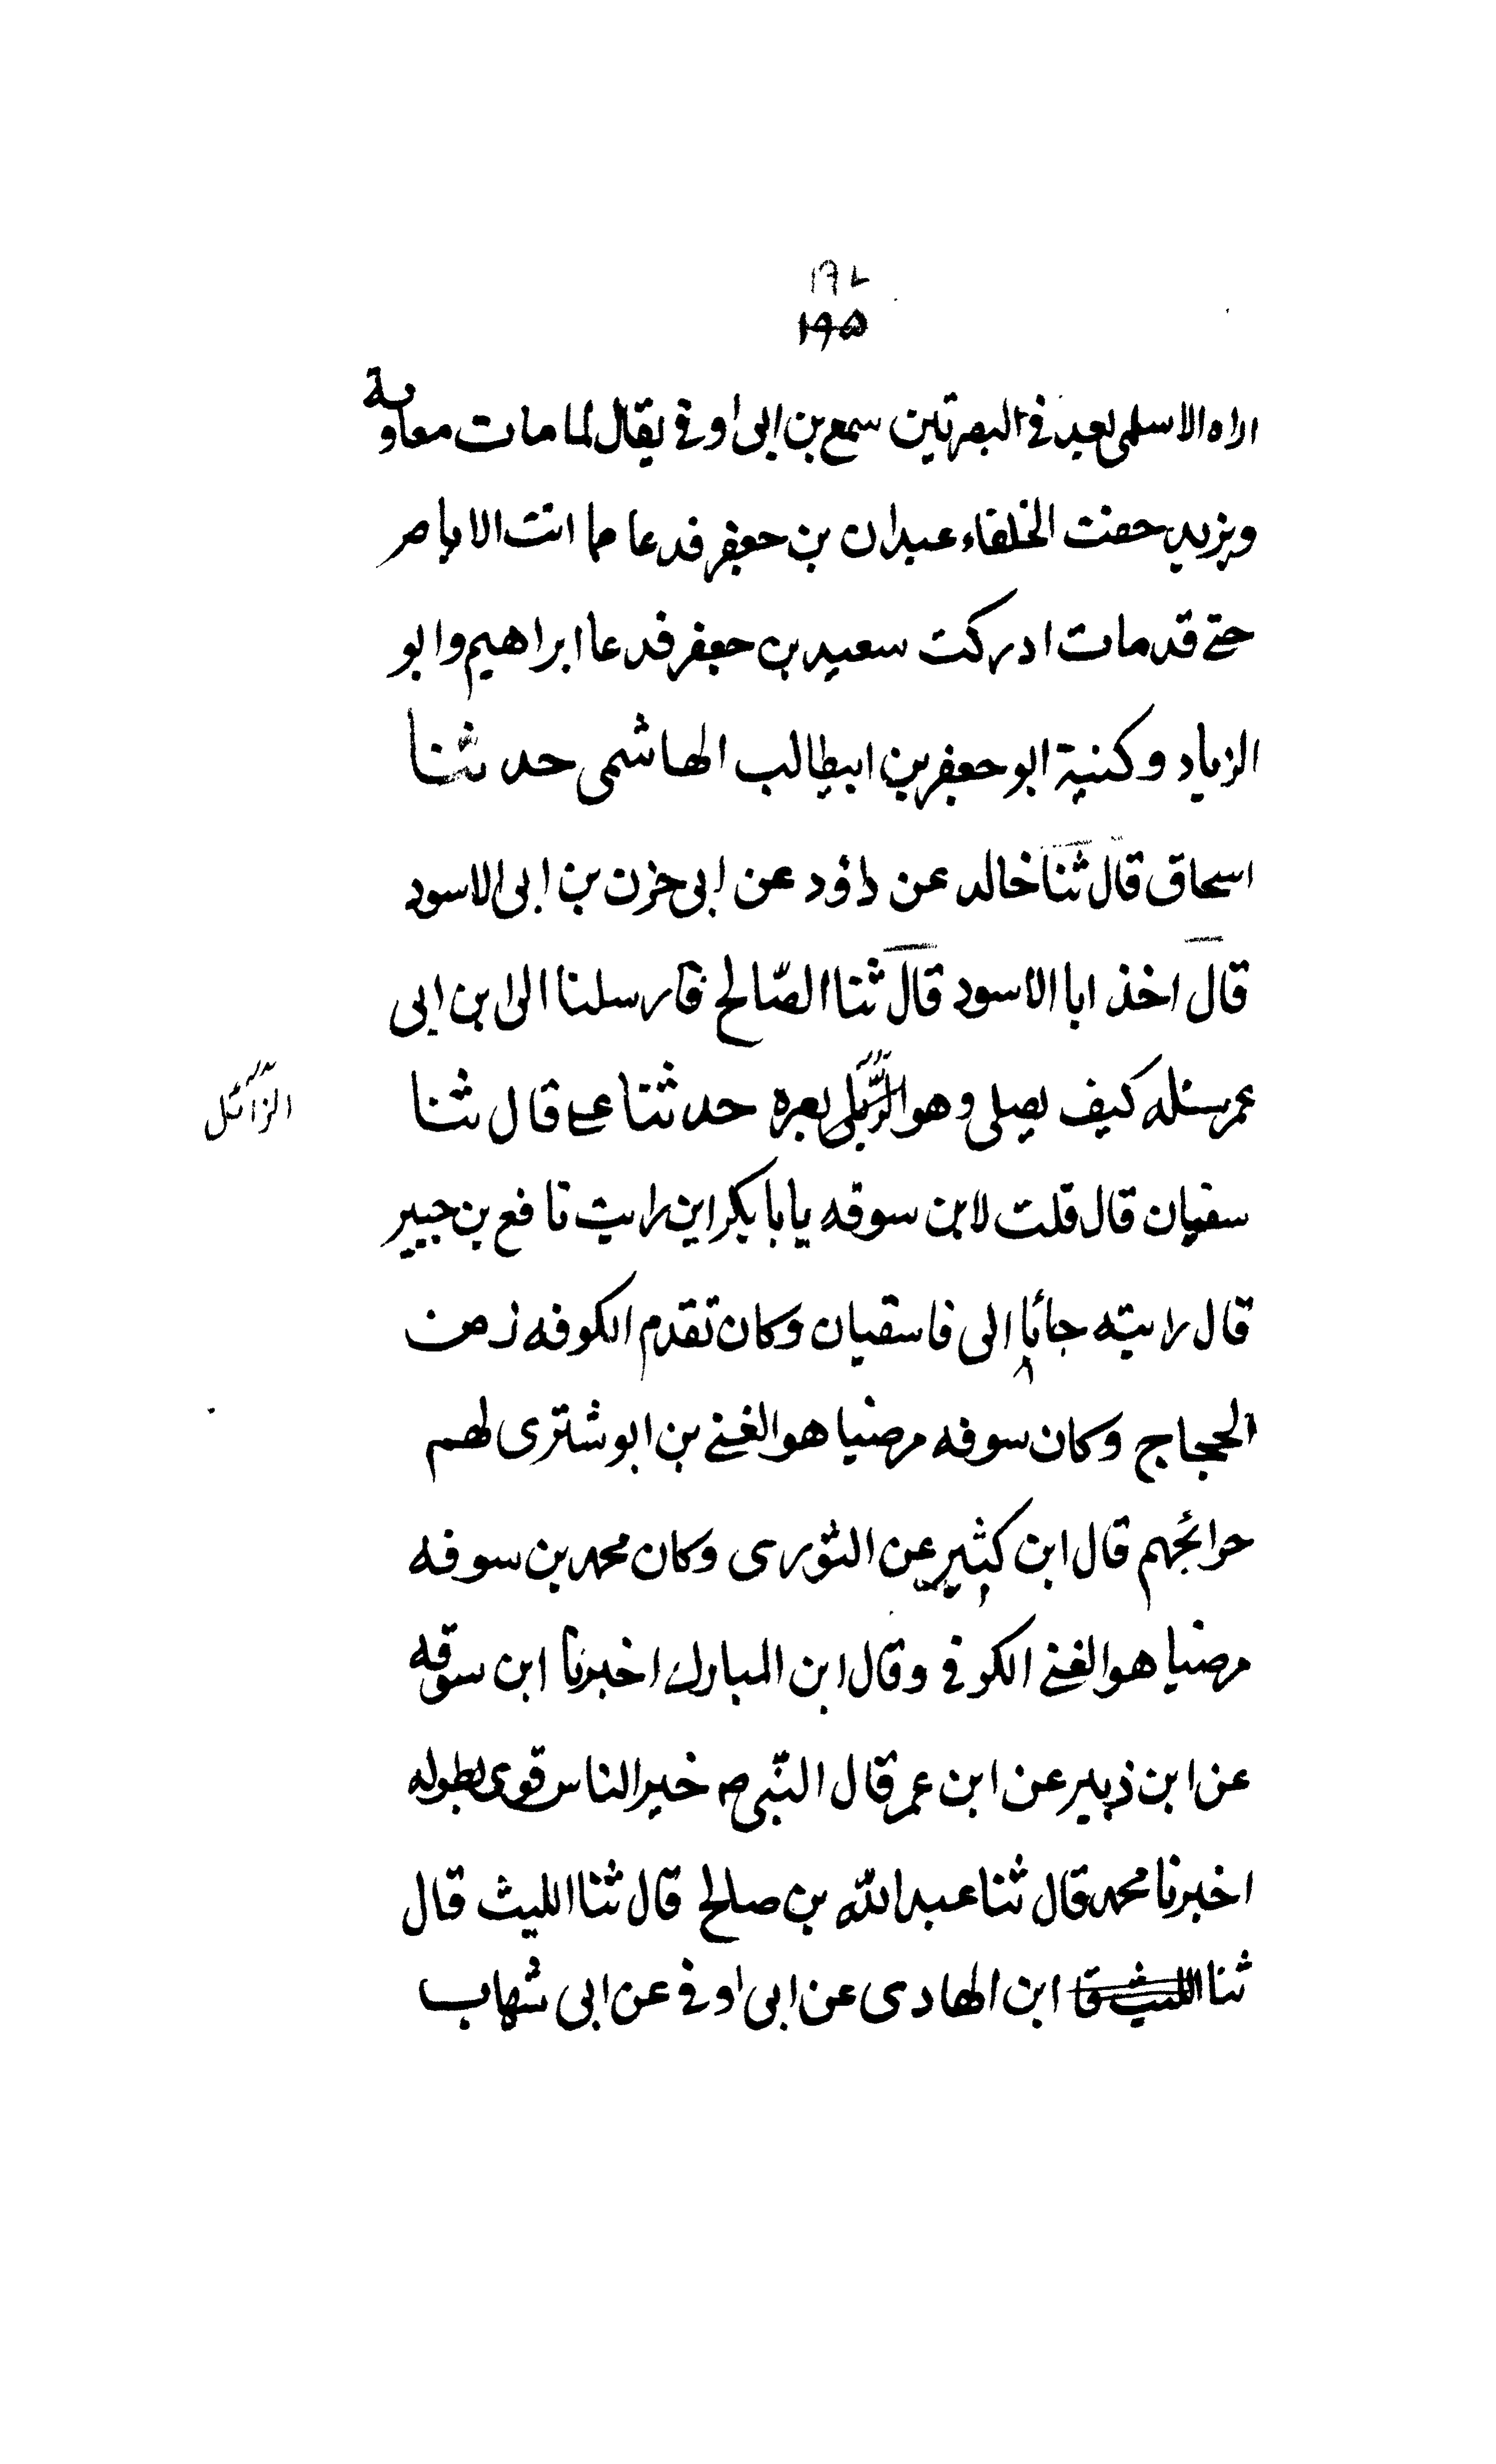 ۱۹۵
اراه الاسلمى يعد فى البصرتين سمع بن ابى اوفى يقال لما مات معاوية
ويزيد حفت الخلفاء عبدان بن جعفر فدعا مما انت الا يا
حتى قد مات ادركت سعيد بن جعفر فدعا ابراهيم وابو
الزياد وكنية ابو جعفر بن ابيطالب الهاشمى حدثنا
اسحاق قال ثنا خالد عن داؤد عن ابى حزن بن ابى الاسود
قال اخذ ابا الاسود قال ثنا الصّالح فارسلنا الى ابن ابى
عمر سئله كيف يصلى وهو بعره حدثنا على قال ثنا
سفيان قال قلت لابن سوقه يا بابكر اين رايت نافع بن جبير
قال رايته جائيا الى فاسقيان وكان تقدم الكوفه زمن
الحجاج وكان سوفه مرضيا هو الغنى بن ابو شترى لهم
حوائجهم قال ابن كثير عن الثورى وكان محمد بن سوفه
مرضيا هو الغنى الكوفى وقال ابن المبارك اخبرنا ابن سوقه
عن ابن ذبير عن ابن عمر قال النّبى ص خير الناس قوى بطوله
اخبرنا محمد قال ثنا عبد الله بن صالح قال ثنا الليث قال
ثنا ابن الهادى عن ابى اوفى عن ابى شهاب